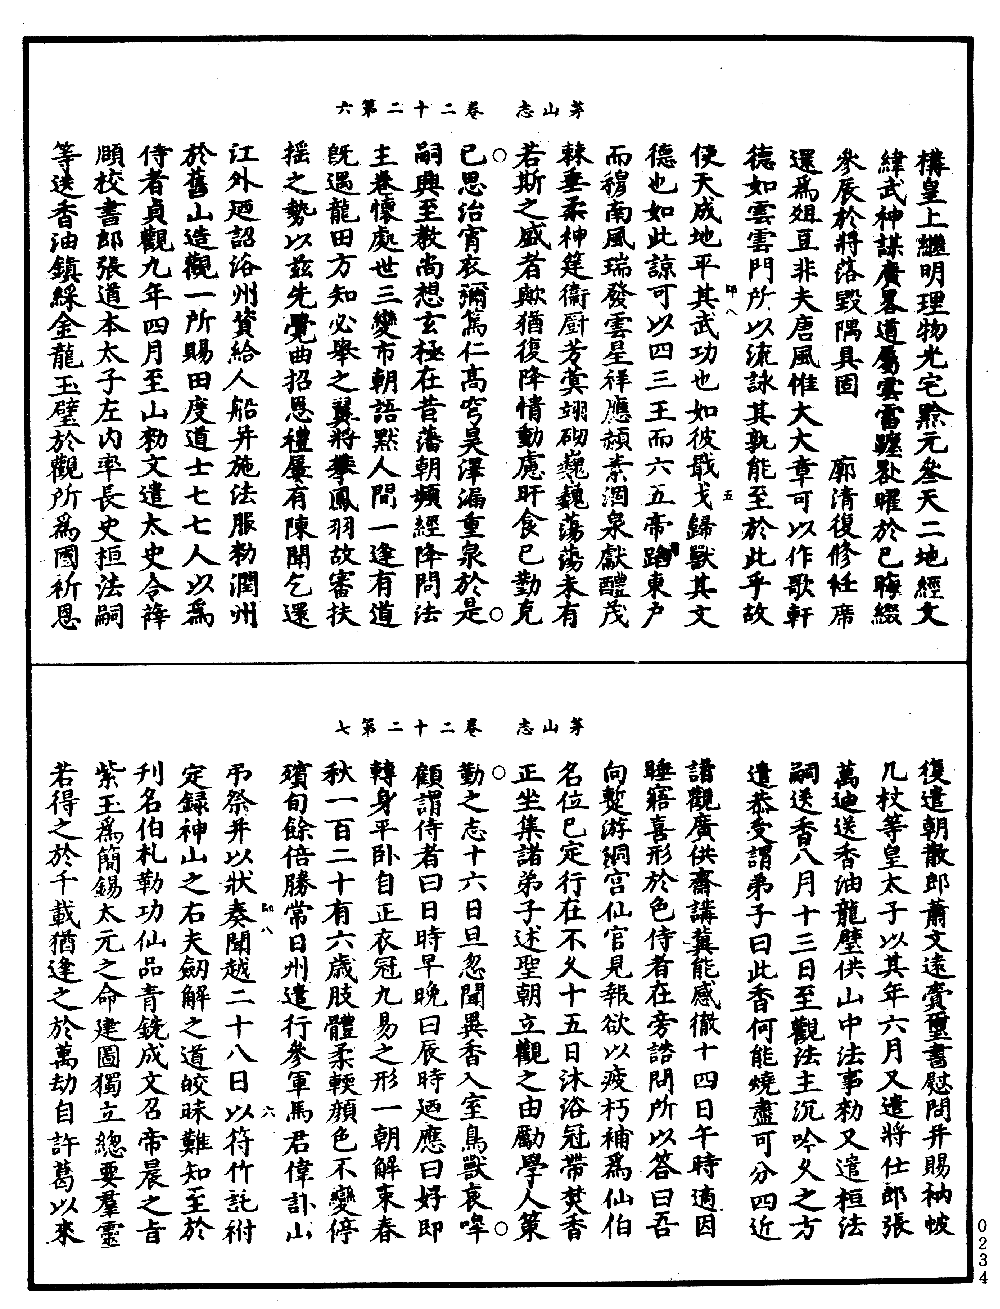 茅山志　卷二十二第六
構皇上繼明理物光宅黔元叄天二地經文
緯武神謀廣畧道屬雲雷躔𣅿曜於已晦綴
參辰於將落毀隅具固　廓清復修衽席
還爲俎豆非夫唐風惟大大章可以作歌軒
德如雲雲門所以流詠其孰能至於此乎故
使天成地平其武功也如彼戢戈歸獸其文
德也如此諒可以四三王而六五帝跨東户
而穆南風瑞發雲星祥應頳素涸泉獻醴茂
棘垂柔神筵衞厨芳蓂翊砌巍巍蕩蕩未有
若斯之盛者歟猶復降情動慮旰食已勤克
已思治宵衣彌篤仁高穹昊澤漏重泉於是
嗣興至教尚想玄極在昔藩朝頻經降問法
主卷懷處世三變市朝語默人間一逢有道
旣遇龍田方知必舉之翼將攀鳳羽故審扶
揺之勢以兹先覺曲招恩禮屢有陳聞乞還
江外廼詔浴州資給人船并施法服勑潤州
於舊山造觀一所賜田度道士七七人以爲
侍者貞觀九年四月至山勑文遣太史令薛
頤校書郎張道本太子左内率長史桓法嗣
等送香油鎮綵金龍玉璧於觀所爲國祈恩
茅山志　卷二十二第七
復遣朝散郎蕭文遠賫璽書慰問并賜衲帔
几杖等皇太子以其年六月又遣將仕郎張
萬迪送香油龍璧供山中法事勑又遣桓法
嗣送香八月十三日至觀法主沉吟久之方
遣恭受謂弟子曰此香何能燒盡可分四近
諸觀廣供齋講冀能感徹十四日午時適因
睡寤喜形於色侍者在旁諮問所以答曰吾
向蹔游洞宫仙官見報欲以疲朽補爲仙伯
名位已定行在不久十五日沐浴冠帶焚香
正坐集諸弟子述聖朝立觀之由勵學人策
勤之志十六日旦忽聞異香入室鳥獸哀嘷
顧謂侍者曰日時早晚曰辰時廼應曰好即
轉身平卧自正衣冠九易之形一朝解柬春
秋一百二十有六歳肢體柔輭顔色不變停
殯旬餘倍勝常日州遣行參軍馬君偉訃山
弔祭并以狀奏聞越二十八日以符竹託祔
定録神山之右夫劒解之道皎昧難知至於
刊名伯札勒功仙品青銑成文召帝晨之旨
紫玉爲簡錫太元之命建圖獨立總要羣靈
若得之於千載猶逢之於萬劫自許葛以來
0234